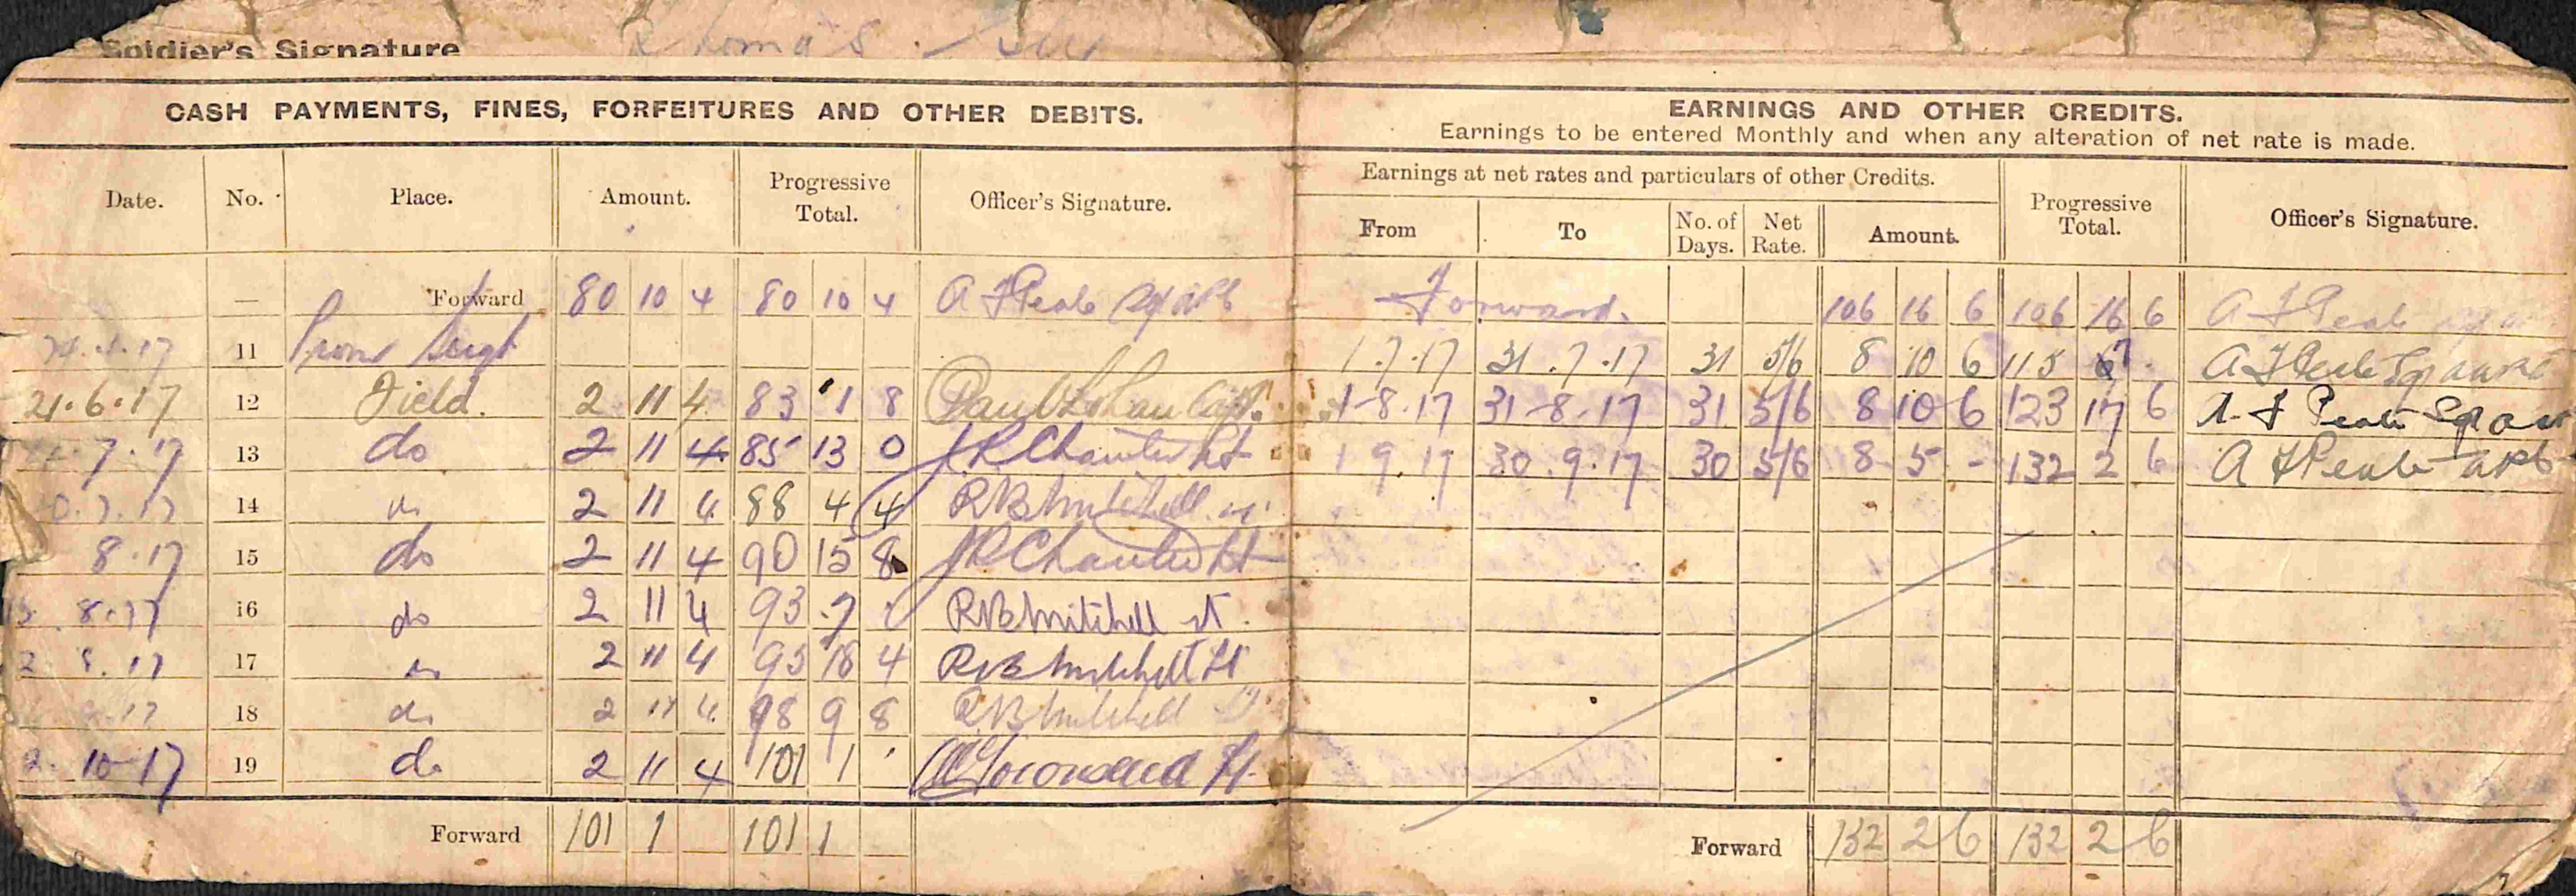 Soldier's Signature Thomas
CASH PAYMENTS, FINES, FORFEITURES AND OTHER DEBITS.
Date. No. Place. Amount. Progressive Total. Officer's Signature.
— Forward 80 10 4 80 10 4 A F Peate
11 Prom Sergt
21.6.17 12 Field. 2 11 4 83 1 8 Capt.
7.17 13 do 2 11 4 85 13 0 J.R. Chanter Lt
7.17 14 do 2 11 4 88 4 4 RB Mitchell Lt
8.17 15 do 2 11 4 90 15 8 J R Chanter Lt
8.17 16 do 2 11 4 93 7 RB Mitchell Lt.
17 do 2 11 4 95 18 4 RB Mitchell Lt
17 18 do 2 11 4 98 9 8 RB Mitchell Lt
2.10.17 19 do 2 11 4 101 1 Townsend Lt.
Forward 101 1 101 1
EARNINGS AND OTHER CREDITS.
Earnings to be entered Monthly and when any alteration of net rate is made.
Earnings at net rates and particulars of other Credits.
From To No. of Days. Net Rate. Amount. Progressive Total. Officer's Signature.
Forward. 106 16 6 106 16 6 A F Peate
1.7.17 31.7.17 31 5/6 8 10 6 115 7 A F Peate
1-8.17 31-8.17 31 5/6 8 10 6 123 17 6 A. F Peate
1 9.17 30.9.17 30 5/6 8 5 - 132 2 6 A F Peate
Forward 132 2 6 132 2 6